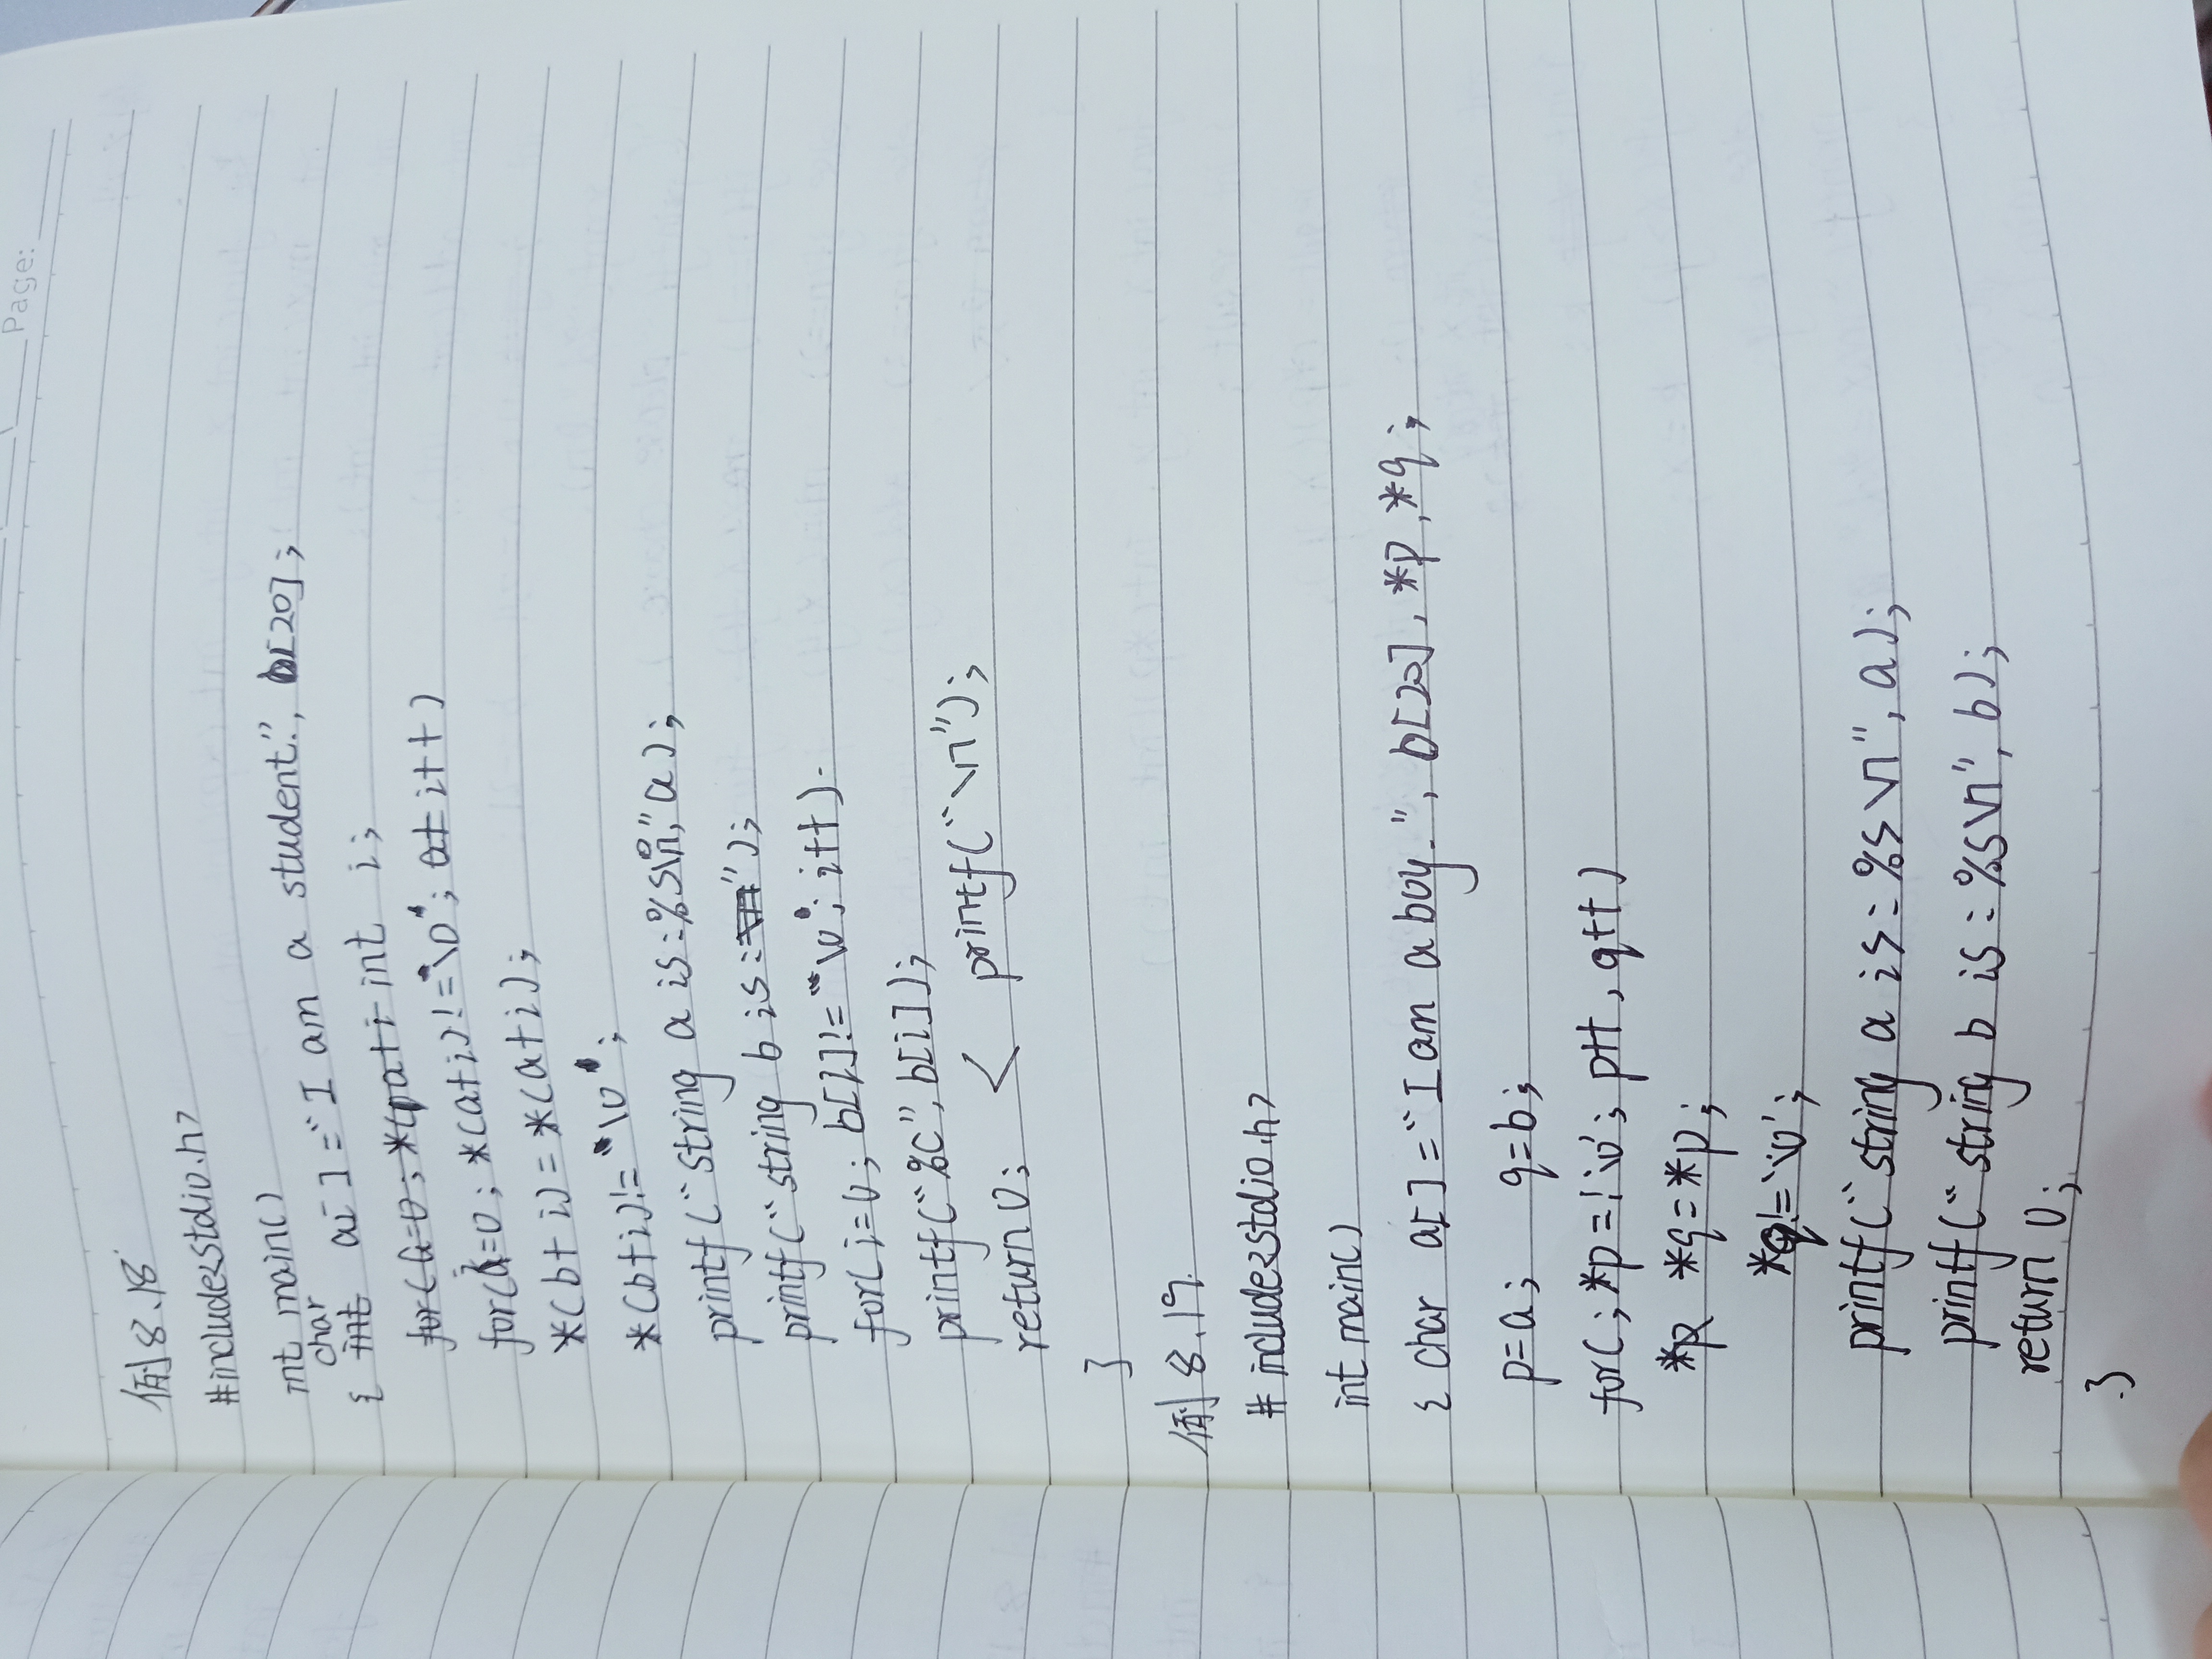 Page:
例8.18
#include<stdio.h>
int main()
char
{ int a[]="I am a student.", b[20];
int i;
for(i=0; *(a+i)!='\0'; i++)
*(b+i)=*(a+i);
*(b+i)!='\0';
printf("string a is:%s\n",a);
printf("string b is:");
for(i=0; b[i]!='\0'; i++).
printf("%c",b[i]);
return 0; < printf("\n");
}
例8.19.
#include<stdio.h>
int main()
{ char a[]="I am a boy.", b[20], *p, *q;
p=a; q=b;
for(;*p=!'\0'; p++, q++)
*p *q=*p;
*q!='\0';
printf("string a is:%s\n",a);
printf("string b is:%s\n",b);
return 0;
}